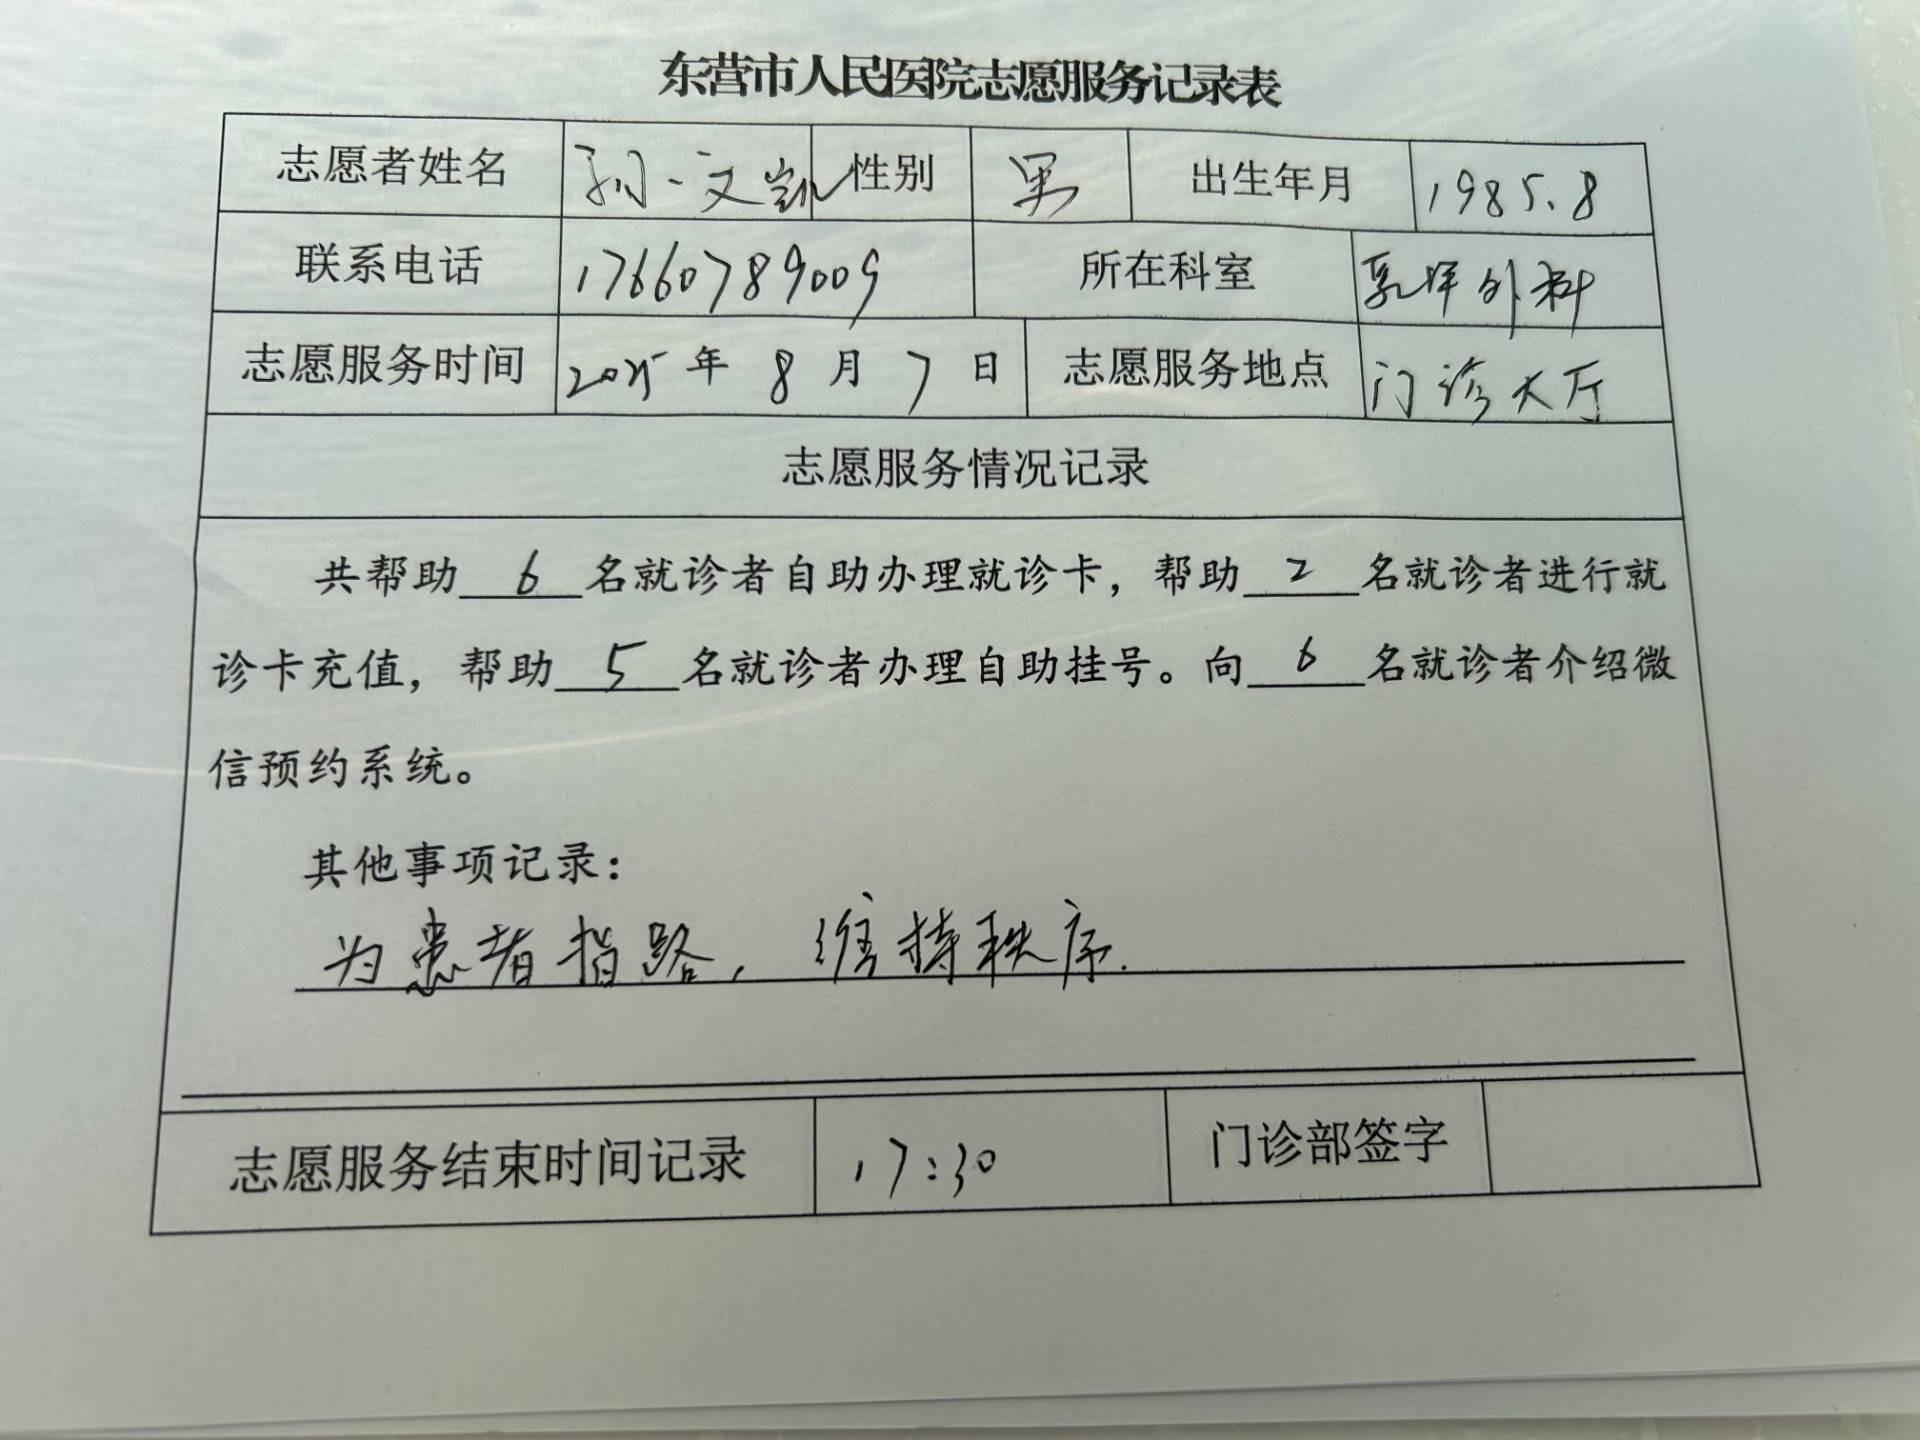 东营市人民医院志愿服务记录表
志愿者姓名 孙一文凯 性别 男 出生年月 1985.8
联系电话 17660789009 所在科室 乳甲外科
志愿服务时间 2025年 8 月 7 日 志愿服务地点 门诊大厅
志愿服务情况记录
共帮助 6 名就诊者自助办理就诊卡，帮助 2 名就诊者进行就
诊卡充值，帮助 5 名就诊者办理自助挂号。向 6 名就诊者介绍微
信预约系统。
其他事项记录：
为患者指路，维持秩序.
志愿服务结束时间记录 17:30 门诊部签字